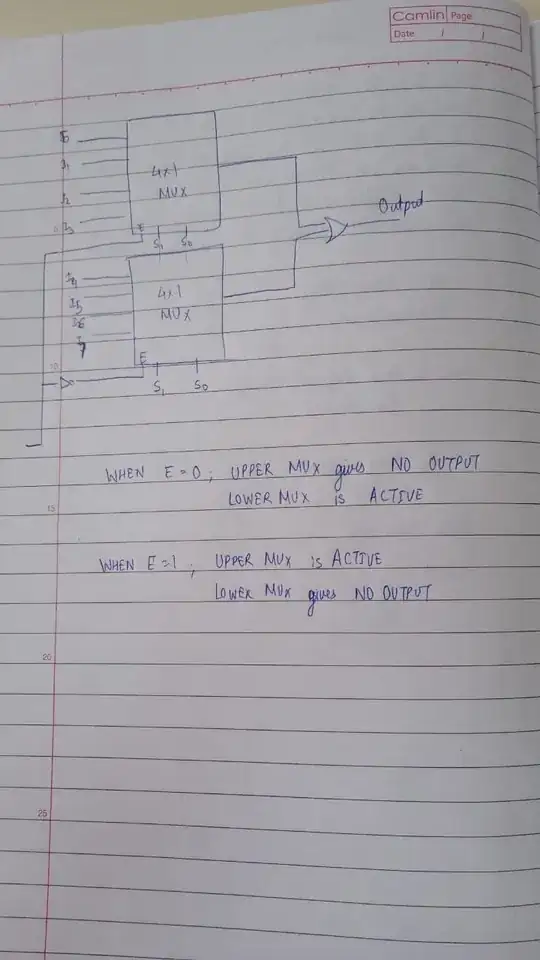 Camlin Page
Date / /
I0
I1
I2
I3
4x1
MUX
E
S1 S0
Output
I4
I5
I6
I7
4x1
MUX
E
S1 S0
WHEN E=0; UPPER MUX gives NO OUTPUT
LOWER MUX is ACTIVE
15
WHEN E=1; UPPER MUX is ACTIVE
LOWER MUX gives NO OUTPUT
20
25